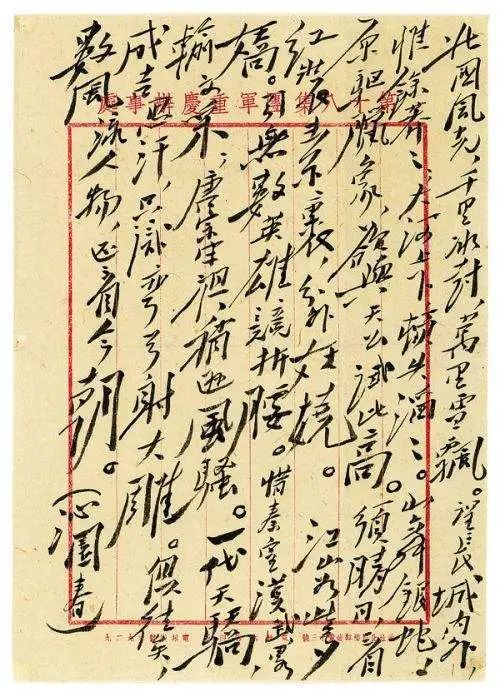 第十八集團軍重慶辦事處
北國風光,千里冰封,萬里雪飄。望長城內外,
惟餘莽〻;大河上下,頓失滔〻。山舞銀蛇,
原驅臘象,欲與天公試比高。須晴日,看
紅裝素裹,分外妖嬈。 江山如此多
嬌,引無數英雄競折腰。惜秦皇漢武,略
輸文采;唐宗宋祖,稍遜風騷。一代天驕,
成吉思汗,只識彎弓射大雕。俱往矣,
數風流人物,還看今朝。 (沁園春)